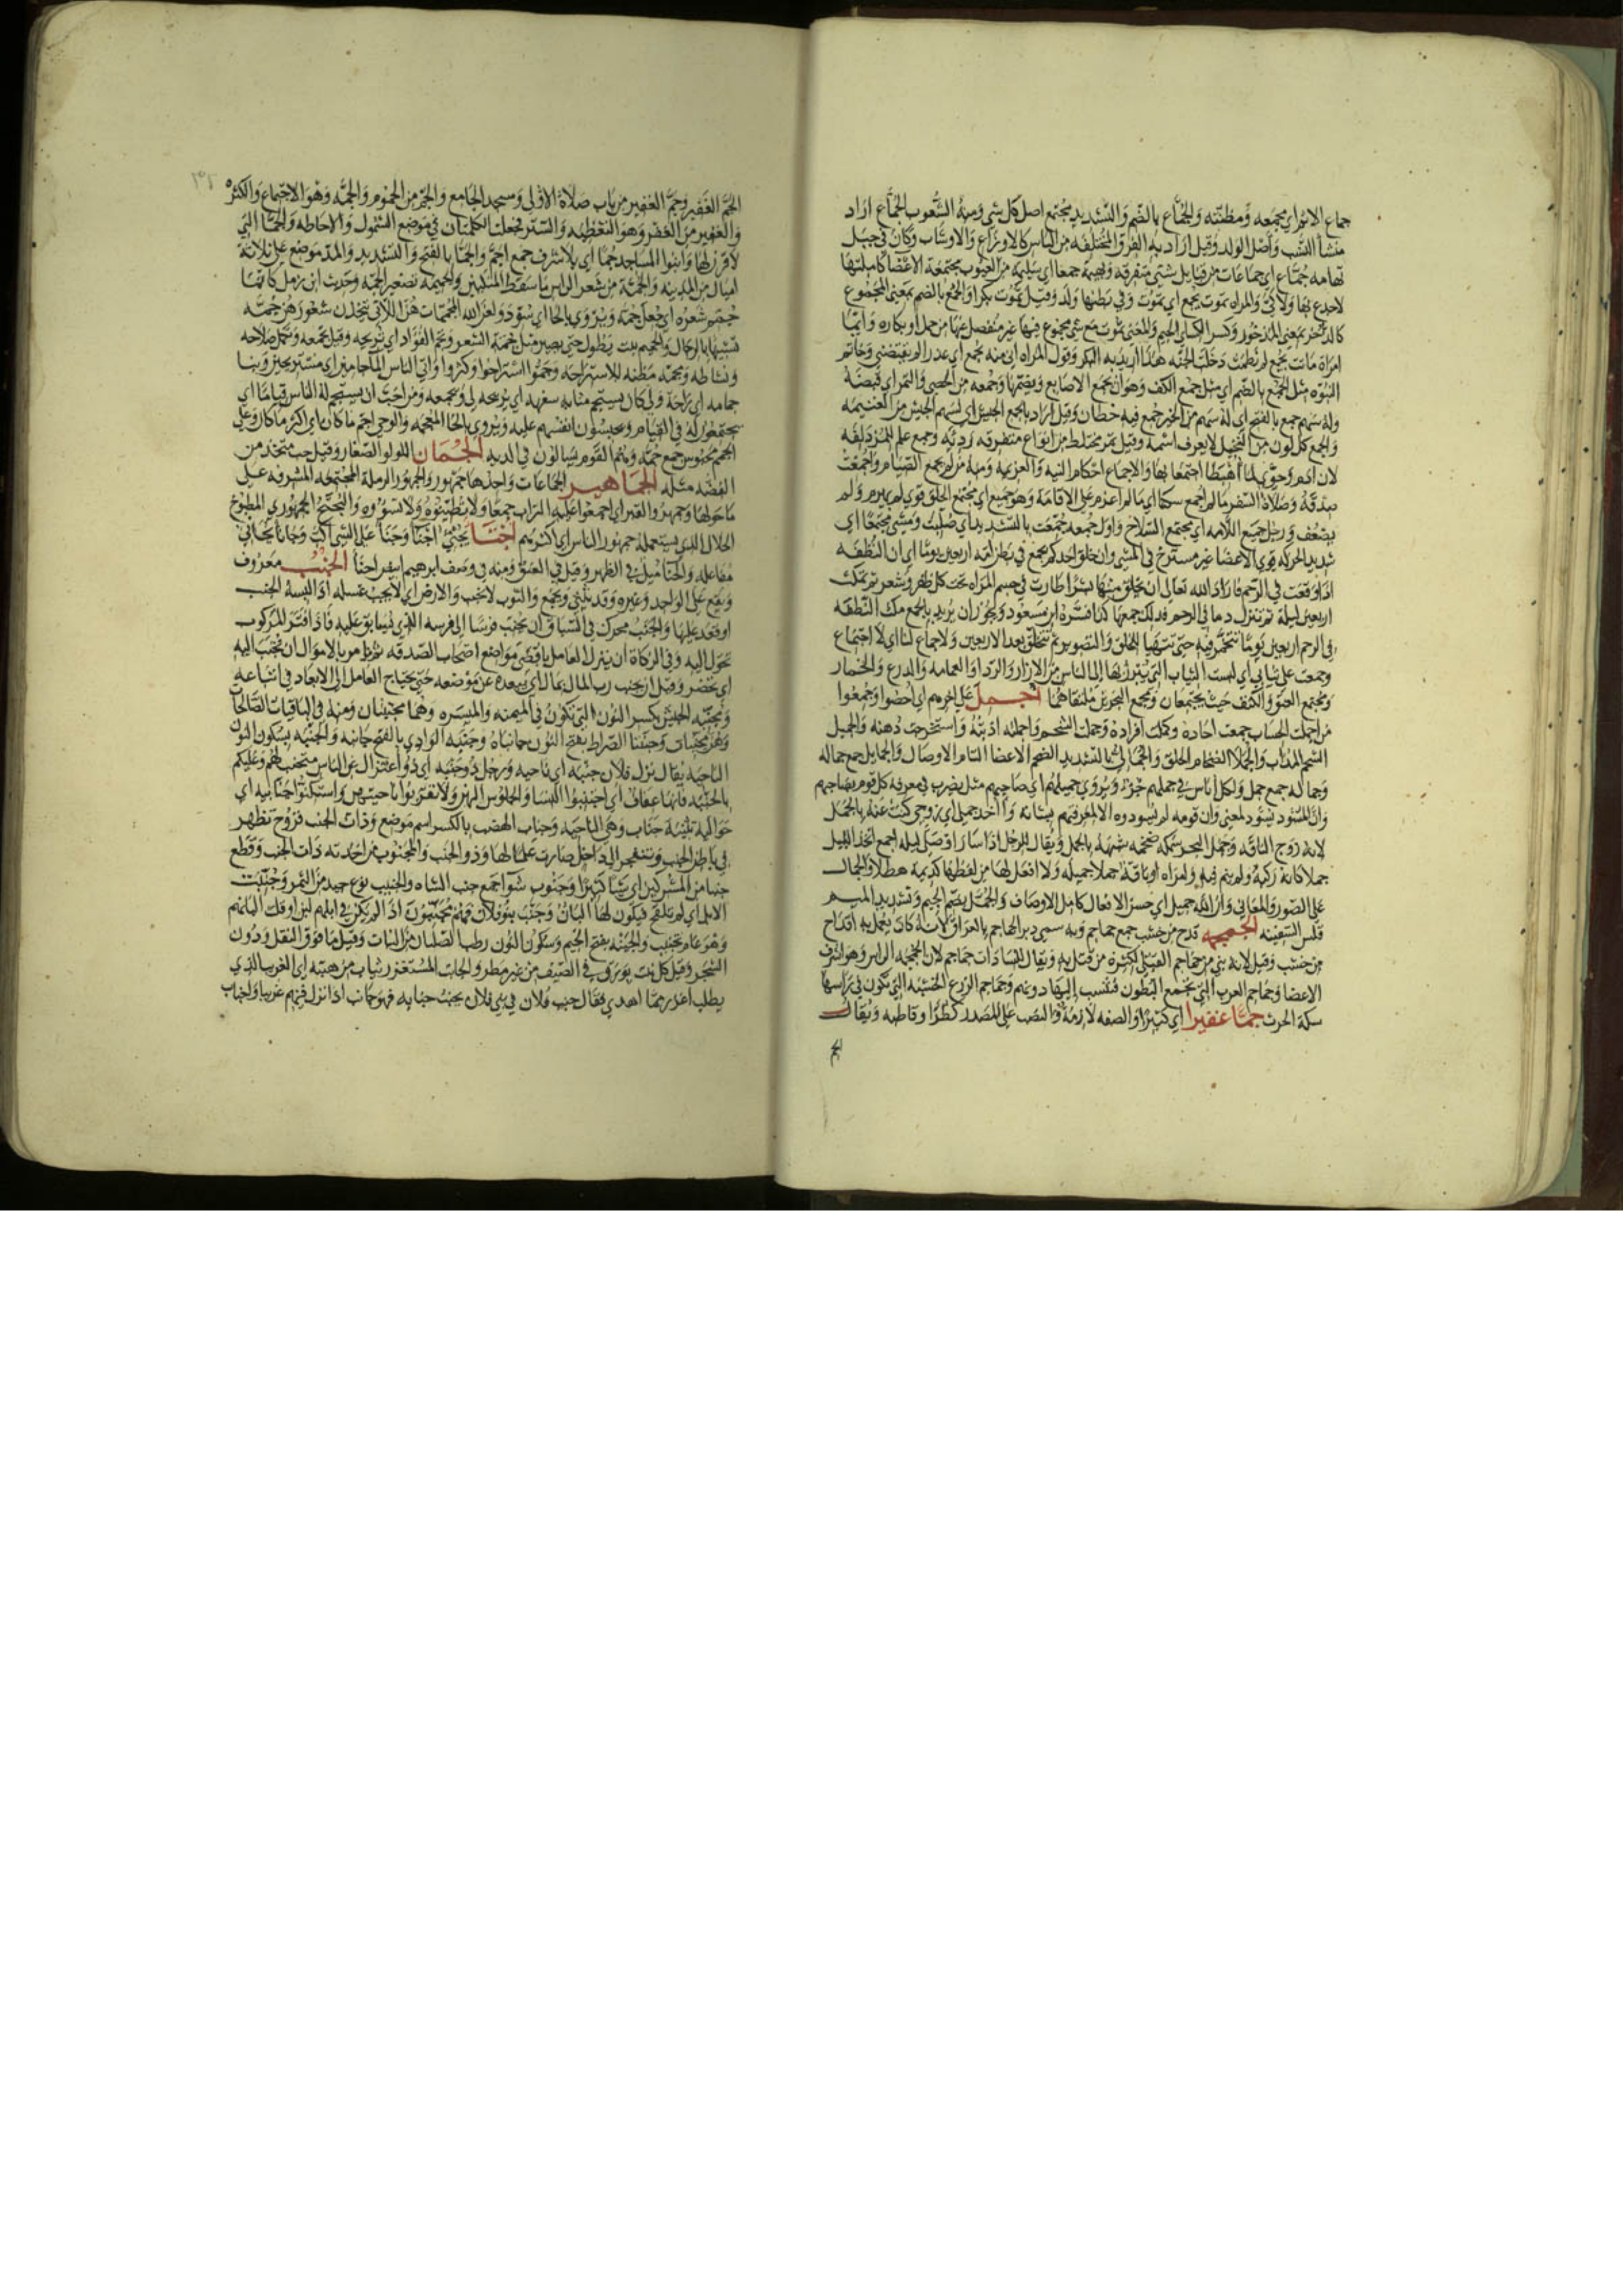 جماع الاثم اي مجمعه ومظنته والجماع بالضم والتشديد مجتمع اصل كل شي ومنه الشعوب الجماع اراد
منشا النسب واصل الولد وقيل اراد به الفرق المختلفه من الناس كالاوزاع والاوشاب وكان في جبل
تهامه جماع اي جماعات من قبايل شتى متفرقه وبهيمة جمعا اي سليمه من العيوب مجتمعة الاعضا كاملتها
لا جدع بها ولا كي والمراه تموت بجمع اي تموت وفي بطنها ولد وقيل تموت بكرا والجمع بالضم بمعنى المجموع
كالذخر بمعنى المذخور وكسر الكساي الجيم والمعنى تموت مع شي مجموع فيها غير منفصل عنها من حمل او بكاره وايما
امراة ماتت بجمع لم تطمث دخلت الجنه هذا اريد به البكر وقول المراه اني منه بجمع اي عذرا لم يفتضني وخاتم
النبوه مثل الجمع بالضم اي مثل جمع الكف وهو ان يجمع الاصابع ويضمها وجمعه من الحصى والتمر اي قبضة
وله سهم جمع بالفتح اي له سهم من الخير جمع فيه حظان وقيل اراد بالجمع الجيش اي لسهم الجيش من الغنيمه
والجمع كل لون من النخيل لا يعرف اسمه وقيل تمر مختلط من انواع متفرقه رديه وجمع علم المزدلفه
لان ادم وحوى لما اهبطا اجتمعا بها والاجماع احكام النيه والعزيمه ومنه من لم يجمع الصيام واجمعت
صدقه وصلاة السفر ما لم اجمع مكثا اي ما لم اعزم على الاقامة وهو جميع اي مجتمع الخلق قوي لم يهرم ولم
يضعف ورجل جميع اللامه اي مجتمع السلاح واول جمعه جمعت بالتشديد اي صليت ومشى مجتمعا اي
شديد الحركه قوي الاعضا غير مسترخ في المشي وان خلق احدكم يجمع في بطن امه اربعين يوما اي ان النطفه
اذا وقعت في الرحم فاراد الله تعالى ان يخلق منها بشرا طارت في جسم المراه تحت كل ظفر وشعر ثم تمكث
اربعين ليلة ثم تنزل دما في الرحم فذلك جمعها كذا فسره ابن مسعود ويجوز ان يريد بالجمع مكث النطفه
في الرحم اربعين يوما تتخمر فيه حتى تتهيا للخلق والتصوير ثم تتخلق بعد الاربعين ولا جماع لنا اي لا اجتماع
وجمعت علي ثيابي اي لبست الثياب التي يبرز بها الى الناس من الازار والردا والعمامه والدرع والخمار
ومجتمع العنق والكتف حيث يجتمعان ومجمع البحرين ملتقاهما اجمل على اخرهم اي احصوا وجمعوا
من اجملت الحساب جمعت احاده وكملت افراده وجملت الشحم واجملته اذبته واستخرجت دهنه والجميل
الشحم المذاب والجملا الضخام الخلق والجمالي بالتشديد الضخم الاعضا التام الاوصال والجمايل جمع جماله
وجماله جمع جمل ولكل اناس في جملهم خبر ويروى جميلهم اي صاحبهم مثل يضرب في معرفة كل قوم بصاحبهم
وان المسود يسود لمعنى وان قومه لم يسودوه الا لمعرفتهم بشانه واؤخذ جملي اي زوجي كنت عنه بالجمل
لانه زوج الناقه وجمل البحر سمكه ضخمه شبهه بالجمل ويقال للرجل اذا سار ووصل ليله اجمع اتخذ الليل
جملا كانه ركبه ولم ينم فيه وامراه او ناقة جملا جميله ولا افعل لها من لفظها كديمة هطلا والجمال
على الصور والمعاني وان الله جميل اي حسن الافعال كامل الاوصاف والجمل بضم الجيم وتشديد الميم
قلس السفينه الجمجمه قدح من خشب جمع جماجم وبه سمي دير الجماجم بالعراق لانه كان يعمل به اقداح
من خشب وقيل لانه بني من جماجم القتلى لكثرة من قتل به ويقال للسادات جماجم لان الجمجمه الراس وهو اشرف
الاعضا وجماجم العرب التي تجمع البطون فتنسب اليها دونهم وجماجم الزرع الخشبه التي تكون في راسها
سكة الحرث جما غفيرا اي كثيرا والصفه لازمة والنصب على المصدر كطرا وقاطبه ويقال
الجم
الجم الغفير وجم الغفير من باب صلاة الاولى ومسجد الجامع والجم من الجموم والجمه وهو الاجتماع والكثره
والغفير من الغفر وهو التغطيه والستر فجعلت الكلمتان في موضع الشمول والاحاطه والجما التي
لا قرن لها وابنوا المساجد جما اي بلا شرف جمع اجم والجما بالفتح والتشديد والمد موضع على ثلاثة
اميال من المدينه والجمة من شعر الراس ما سقط المنكبين والجميمه تصغير الجمه وحديث ابن زمل كانما
جمم شعره اي جعل جمة ويروى بالحا اي سود ولعن الله المجممات هن اللاتي يتخذن شعورهن جمه
تشبيها بالرجال والجميم نبت يطول حتى يصير مثل جمة الشعر وتجم الفؤاد اي تريحه وقيل تجمعه وتكمل صلاحه
ونشاطه ومجمه مظنه للاستراحه وجموا استراحوا وكثروا واتى الناس الما جامين اي مستريحين وبنا
جمامه اي راحة ولي كان يستجم مثابه سفهه اي يريحه لي ويجمعه ومن احب ان يستجم له الناس قياما اي
يجتمعون له في القيام ويحبسون انفسهم عليه ويروى بالخا المعجمه والوحي اجم ما كان اي اكثر ما كان وعلى
الجمم محبوس جمع جمه وهم القوم يسالون في الديه الجمان اللولو الصغار وقيل حب متخذ من
الفضه مثله الجماهير الجماعات واحدها جمهور والجمهور الرمله المجتمعه المشرفه على
ما حولها وجمهروا القبر اي اجمعوا عليه التراب جمعا ولا تطينوه ولا تسووه والبختج الجمهوري المطبوخ
الحلال الذي يستعمله جمهور الناس اي اكثرهم اجنا يجنئ اجنا وجنا على الشي اكب وجانا يجاني
مفاعله والجنا ميل في الظهر وقيل في العنق ومنه في وصف ابرهيم ابيض اجنا الجنب معروف
ويقع على الواحد وغيره وقد يثنى ويجمع والثوب لا يجنب والارض اي لا يجب غسله اذا لبسه الجنب
او قعد عليها والجنب محرك في السباق ان يجنب فرسا الى فرسه الذي يسابق عليه فاذا فتر المركوب
تحول اليه وفي الزكاة ان ينزل العامل باقصى مواضع اصحاب الصدقه ثم يامر بالاموال ان تجنب اليه
اي تحضر وقيل ان يجنب رب المال بماله اي يبعده عن موضعه حتى يحتاج العامل الى الابعاد في اتباعه
ومجنبه الجيش بكسر النون التي تكون في الميمنه والميسره وهما مجنبتان ومنه في الباقيات الصالحات
وهن مجنبات وجنبتا الصراط بفتح النون جانباه وجنبه الوادي بالفتح جانبه والجنبه بسكون النون
الناحيه يقال نزل فلان جنبه اي ناحيه ورجل ذو جنبه اي ذو اعتزال عن الناس متجنب لهم وعليكم
بالجنبه فانها عفاف اي اجتنبوا النسا والجلوس اليهن ولا تقربوا ناحيتهن واستكنوا جنابيه اي
حواليه تثنية جناب وهي الناحيه وجناب الهضب بالكسر اسم موضع وذات الجنب قروح تظهر
في باطن الجنب وتنفجر الى داخل صارت علما لها وذو الجنب والمجنوب من اخذته ذات الجنب وقطع
جنبا من المشركين اي شيا كثيرا وجنوب شوا جمع جنب الشاه والجنيب نوع جيد من التمر وجنبت
الابل اي لم تلقح فيكون لها البان وجنب بنو فلان فهم مجنبون اذا لم يكن في ابلهم لبن او قلت البانهم
وهو عام تجنيب والجنبه بفتح الجيم وسكون النون رطب الصليان من النبات وقيل ما فوق البقل ودون
الشجر وقيل كل نبت يورق في الصيف من غير مطر والجانب المستغزر يثاب من هبته اي الغريب الذي
يطلب اغزر مما اهدى فقال جنب فلان في بني فلان يجنب جنابه فهو جانب اذا نزل فيهم غريبا والجناب